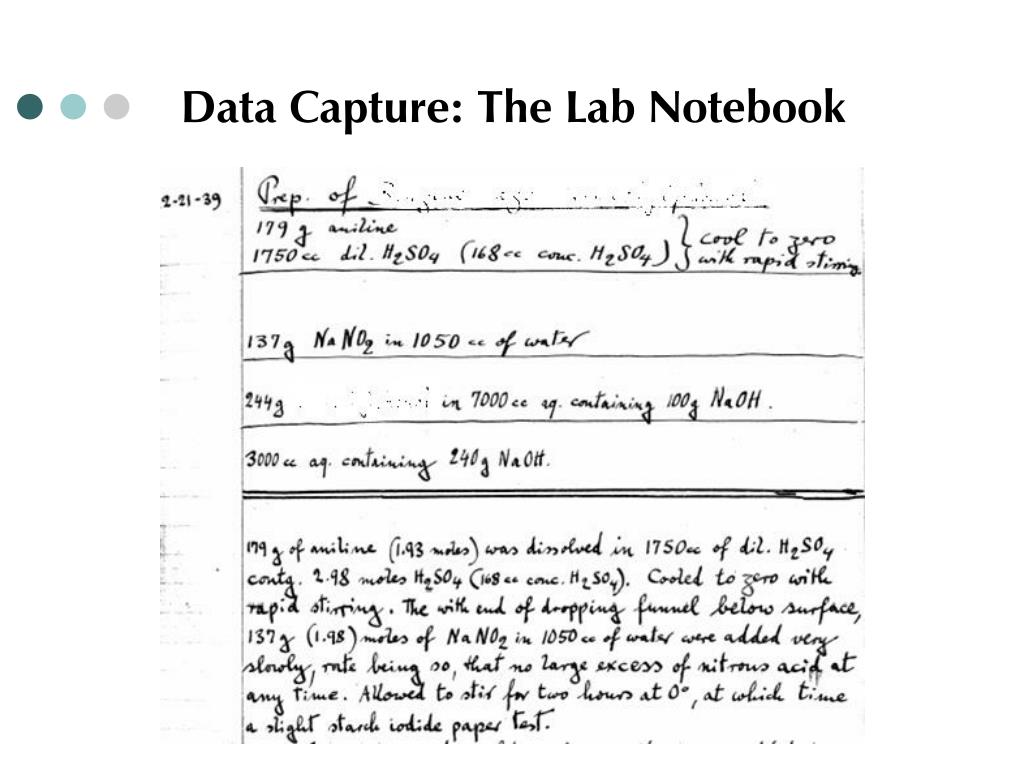 Data Capture: The Lab Notebook
2-21-39
Prep. of
179 g aniline
1750 cc dil. H2SO4 (168 cc conc. H2SO4)
cool to zero
with rapid stirring
137g NaNO2 in 1050 cc of water
244g in 7000 cc aq. containing 100g NaOH.
3000 cc aq. containing 240g NaOH.
179 g of aniline (1.93 moles) was dissolved in 1750cc of dil. H2SO4
contg. 2.98 moles H2SO4 (168 cc conc. H2SO4). Cooled to zero with
rapid stirring. The with end of dropping funnel below surface,
137g (1.98) moles of NaNO2 in 1050 cc of water were added very
slowly, rate being so, that no large excess of nitrous acid at
any time. Allowed to stir for two hours at 0°, at which time
a slight starch iodide paper test.